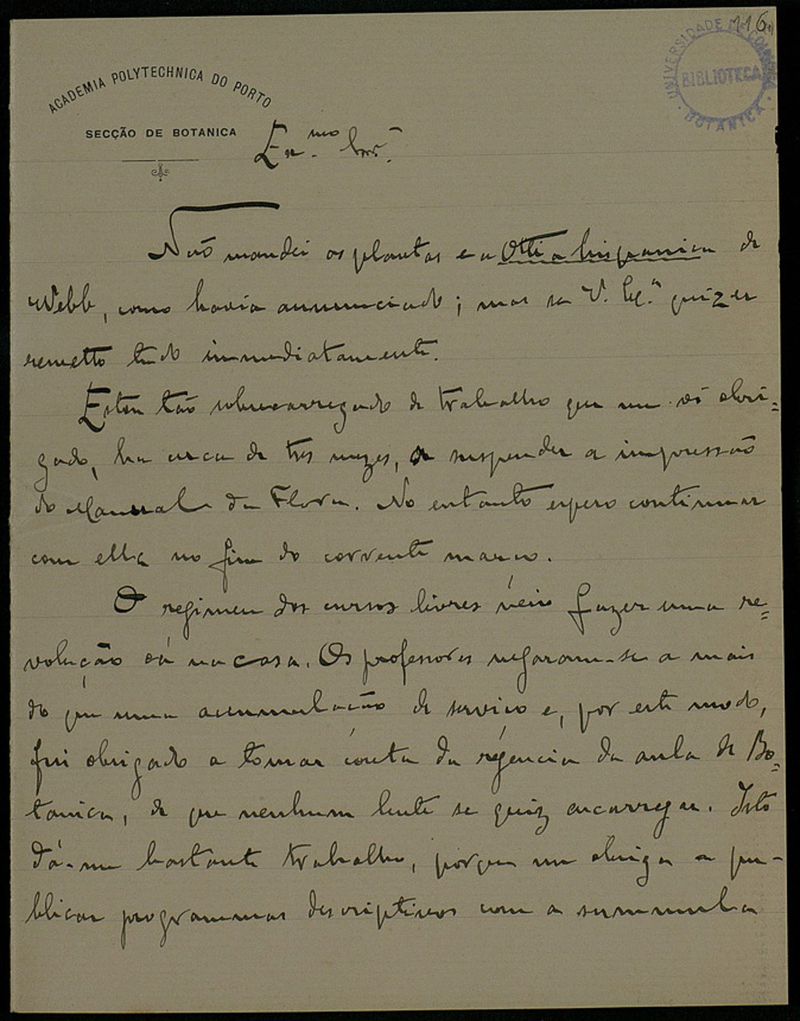 116
UNIVERSIDADE DE COIMBRA
BIBLIOTECA
BOTANICA
ACADEMIA POLYTECHNICA DO PORTO
SECÇÃO DE BOTANICA
Ex.mo Snr.
Não mandei as plantas e a Otia hispanica de
Webb, como havia annunciado; mas se V. Ex.ª quizer
remetto tudo immediatamente.
Estou tão sobrecarregado de trabalho que me vi obri=
gado, ha cerca de tres mezes, a suspender a impressão
do Manual da Flora. No entanto espero continuar
com ella no fim do corrente março.
O regimen dos cursos livres veio fazer uma re=
volução cá na casa. Os professores negaram-se a mais
do que uma accumulação de serviço e, por este modo,
fui obrigado a tomar conta da régencia da aula de Bo=
tanica, de que nenhum lente se quiz encarregar. Isto
dá-me bastante trabalho, porque me obriga a pu-
blicar programmas descriptivos com a summula